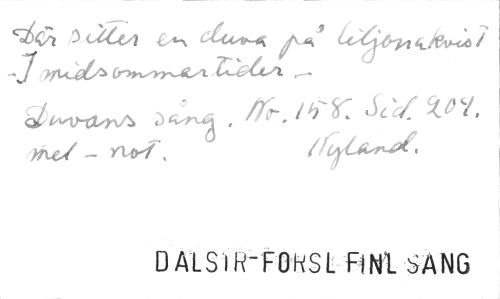 Där sitter en duva på liljonakvist
- I midsommartider -
Duvans sång. No. 158. Sid. 204.
mel - not. Nyland.
DALSTR-FORSL FINL SÅNG